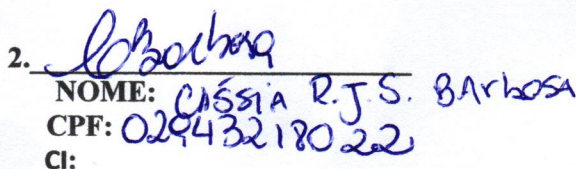 2. CBarbosa
NOME: CÁSSIA R.J.S. BARbOSA
CPF: 02943218022
CI: